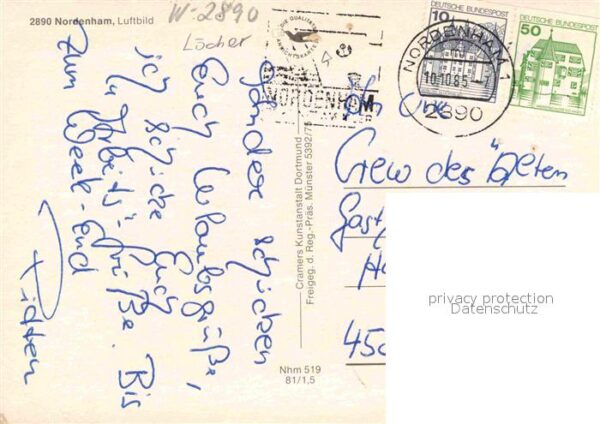 2890 Nordenham, Luftbild
W-2890
Löcher
Andere schicken
Euch Urlaubsgrüße,
ich schicke Euch
"Arbeits"grüße. Bis
zum Week-End
DIE QUALITÄTS
ANSICHTSKARTE
NORDENHAM
Cramers Kunstanstalt Dortmund
Freigeg. d. Reg.-Präs. Münster 5392/75
Nhm 519
81/1,5
10
DEUTSCHE BUNDESPOST
50
DEUTSCHE BUNDESPOST
NORDENHAM 1
10.10.85
2890
An die
Crew des "Alten
Gast
450
privacy protection
Datenschutz